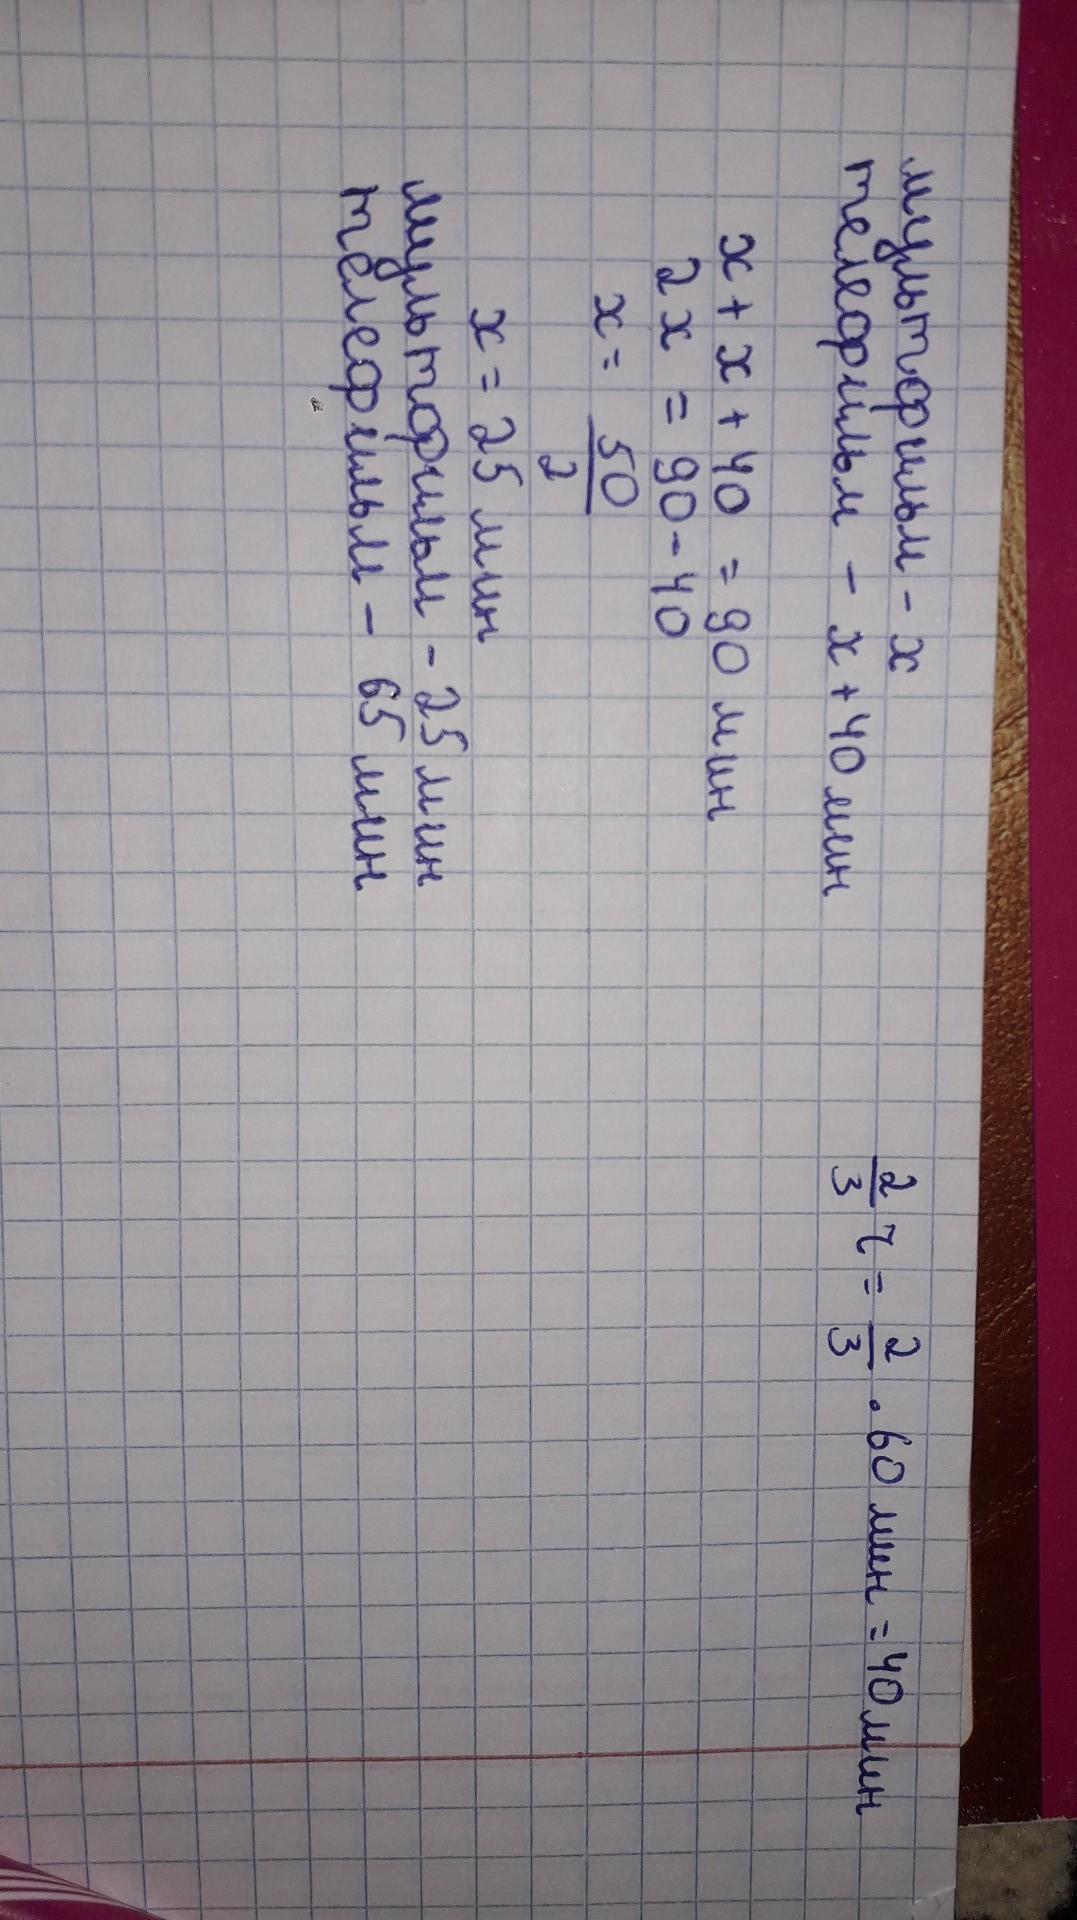 мультфильм - x
телефильм - x + 40 мин
2/3 ч = 2/3 · 60 мин = 40 мин
x + x + 40 = 90 мин
2x = 90 - 40
x = 50/2
x = 25 мин
мультфильм - 25 мин
телефильм - 65 мин